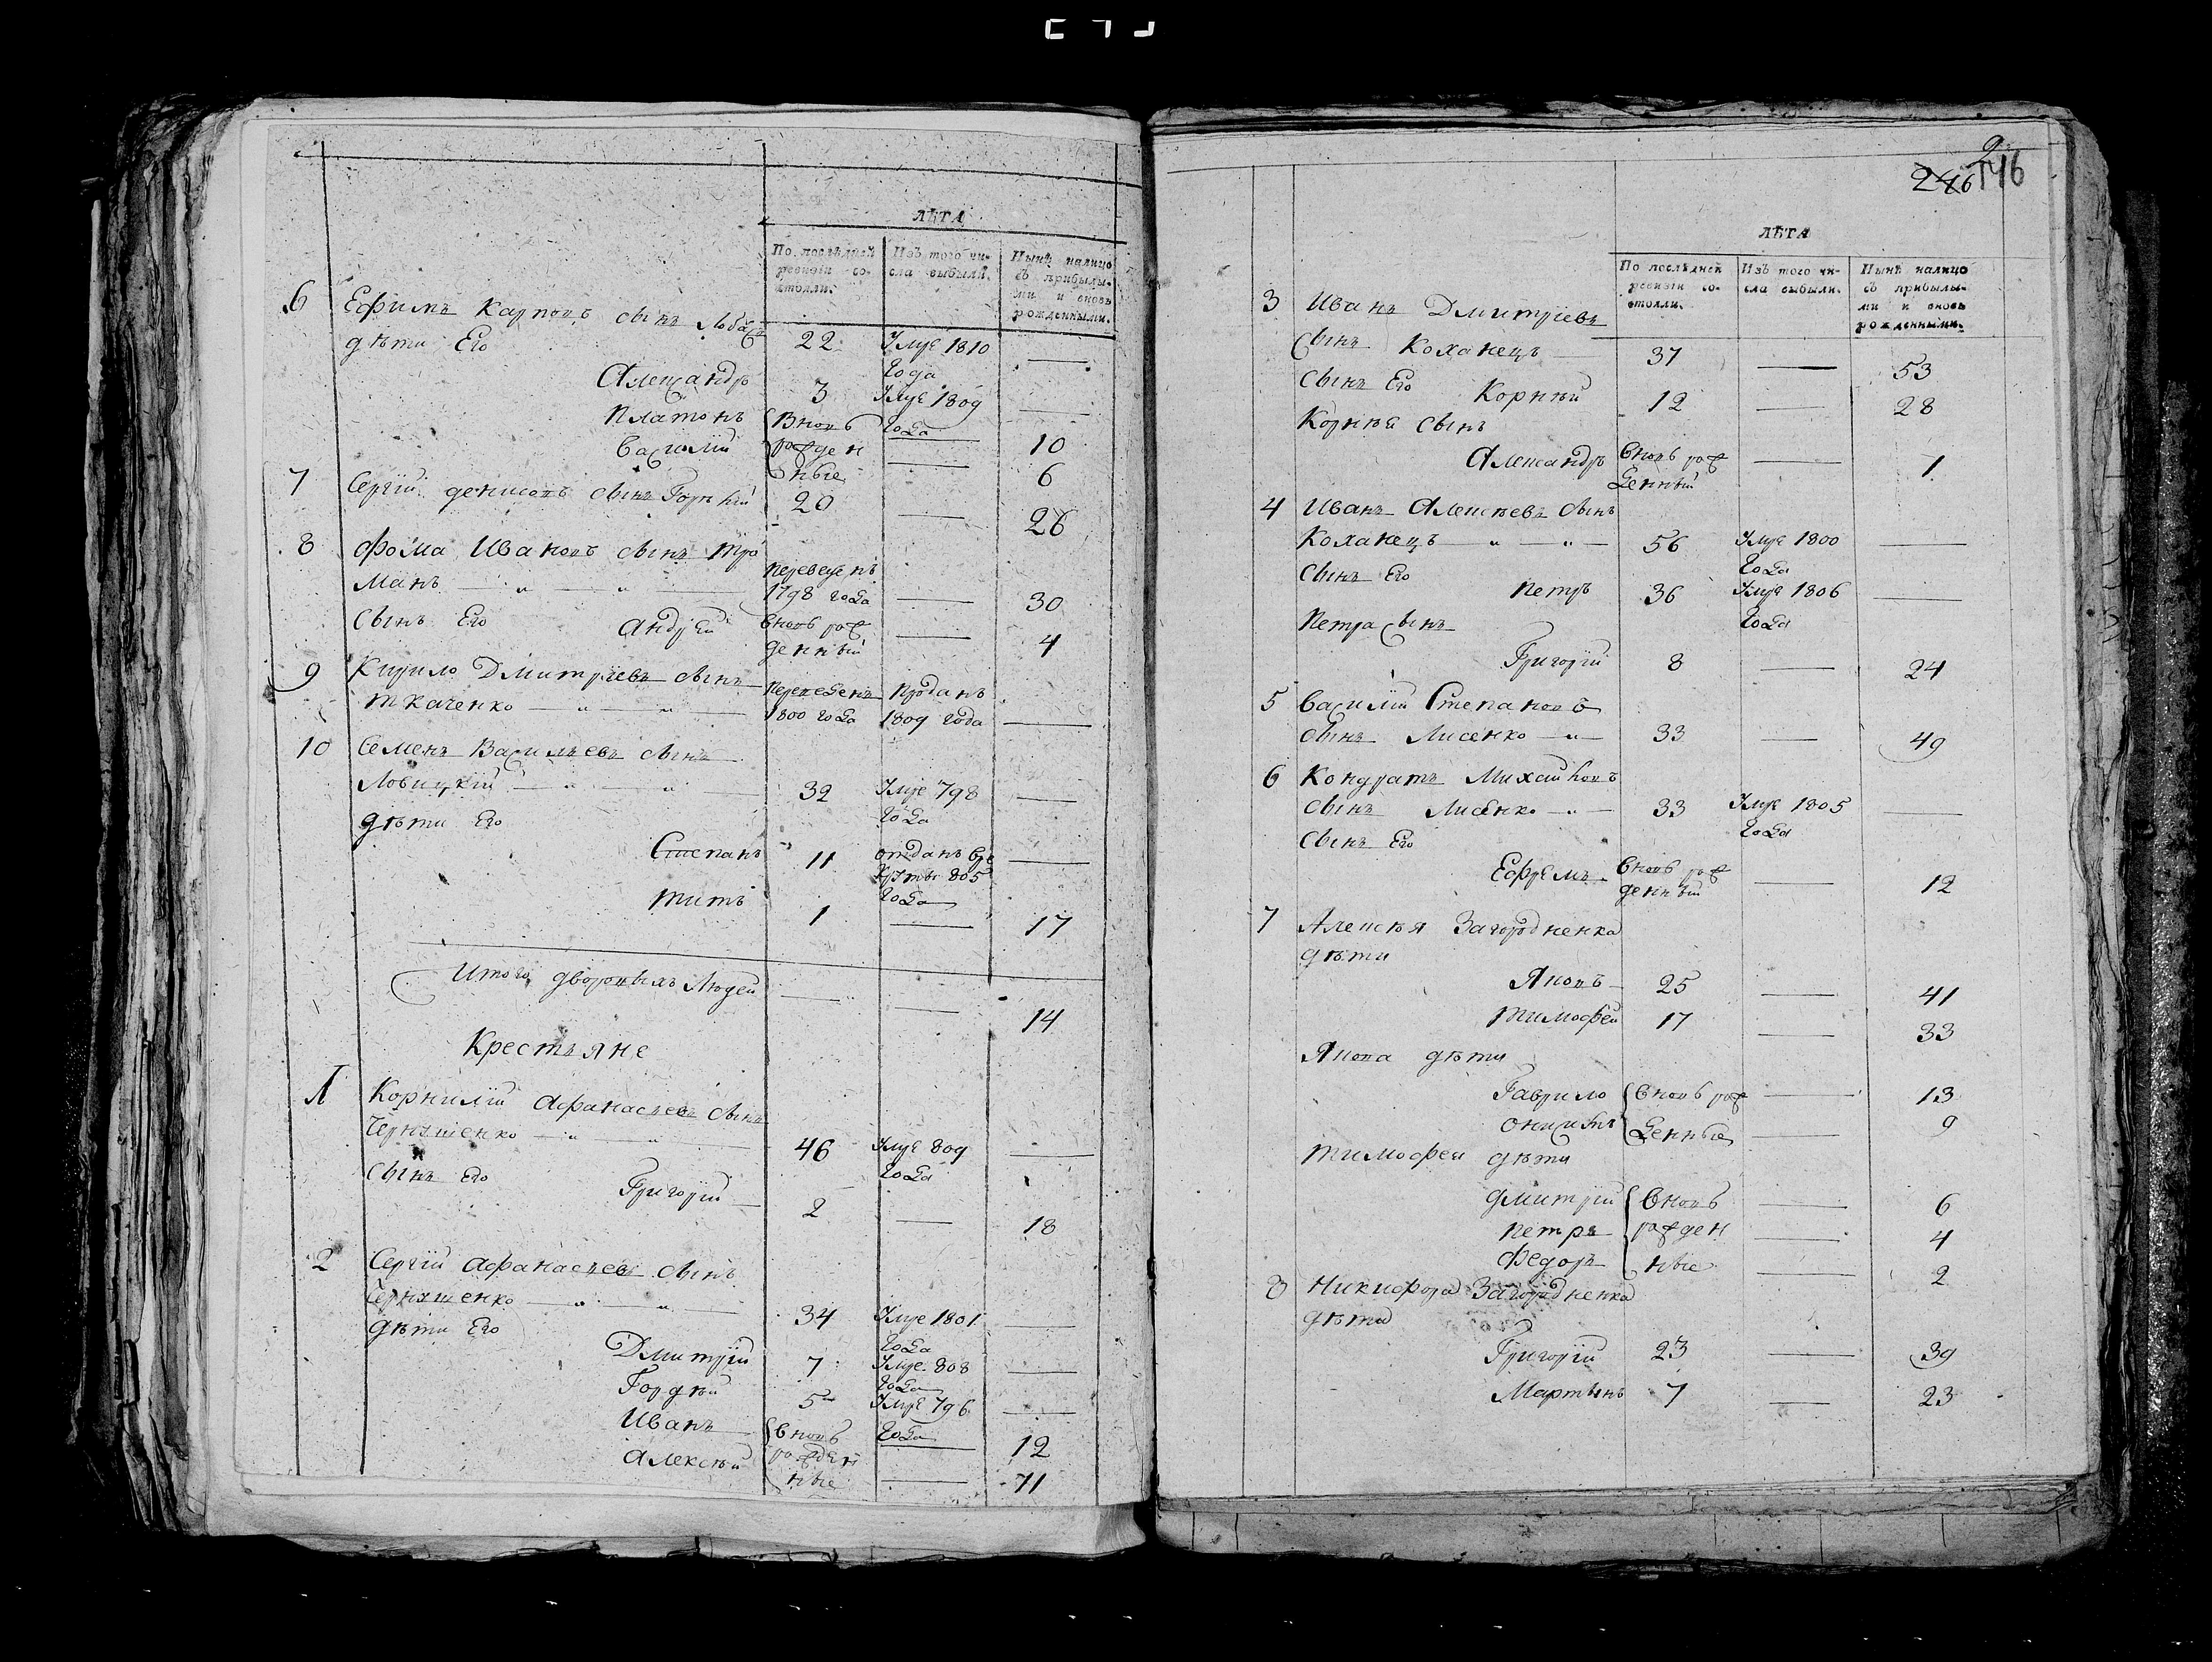 ЛѢТА
По послѣдней ревизіи состояли.
Изъ того числа выбыли.
Нынѣ налицо съ прибылыми и вновь рожденными.
6 Ефимъ Карповъ сынъ
22 Умре 1810 года —
дѣти Его
Александръ 3 Умре 1809 года —
Платонъ Вновь рожденные 10
Василій — 6
7 Сергій Денисовъ сынъ 20 — 26
8 Фома Ивановъ сынъ Троманъ — „ — „ — переведенъ 1798 года — 30
сынъ Его Андрей вновь рожденный — 4
9 Кирило Дмитріевъ сынъ
Ткаченко — „ — „ — переведенъ 1800 года проданъ 1809 года —
10 Семенъ Васильевъ сынъ
Ловицкій — „ — „ — 32 Умре 798 года —
дѣти Его
Степанъ 11 отданъ 805 года —
Титъ 1 — 17
Итого дворовыхъ людей — — 14
Крестьяне
1 Корнилій Афанасьевъ сынъ
Чернушенко — „ — „ — 46 Умре 809 года —
сынъ Его Григорій 2 — 18
2 Сергій Афанасьевъ сынъ
Чернушенко — „ — „ — 34 Умре 1801 года —
дѣти Его
Дмитрій 7 Умре 808 года —
Гордѣй 5 Умре 796 года —
Иванъ вновь рожденные — 12
Алексѣй — 11
246
ЛѢТА
По послѣдней ревизіи состояли.
Изъ того числа выбыли.
Нынѣ налицо съ прибылыми и вновь рожденными.
3 Иванъ Дмитріевъ
сынъ Коханецъ 37 — 53
сынъ Его Корнѣй 12 — 28
Корнѣя сынъ
Александръ вновь рожденный — 1
4 Иванъ Алексѣевъ сынъ
Коханецъ — „ — „ — 56 Умре 1800 года —
сынъ Его Петръ 36 Умре 1806 года —
Петра сынъ
Григорій 8 — 24
5 Василій Степановъ
сынъ Лисенко — „ — 33 — 49
6 Кондратъ Михайловъ
сынъ Лисенко — „ 33 Умре 1805 года —
сынъ Его
Ефремъ вновь рожденный — 12
7 Алексѣя Загородненка
дѣти
Яковъ 25 — 41
Тимофей 17 — 33
Якова дѣти
Гаврило вновь рожденные — 13
Онисимъ — 9
Тимофея дѣти
Дмитрій вновь рожденные — 6
Петръ — 4
Федоръ — 2
8 Никифора Загородненка
дѣти
Григорій 23 — 39
Мартынъ 7 — 23